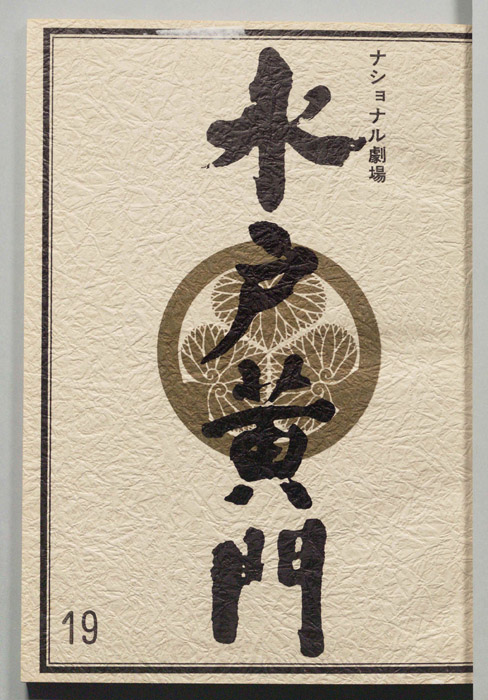 ナショナル劇場
水戸黄門
19